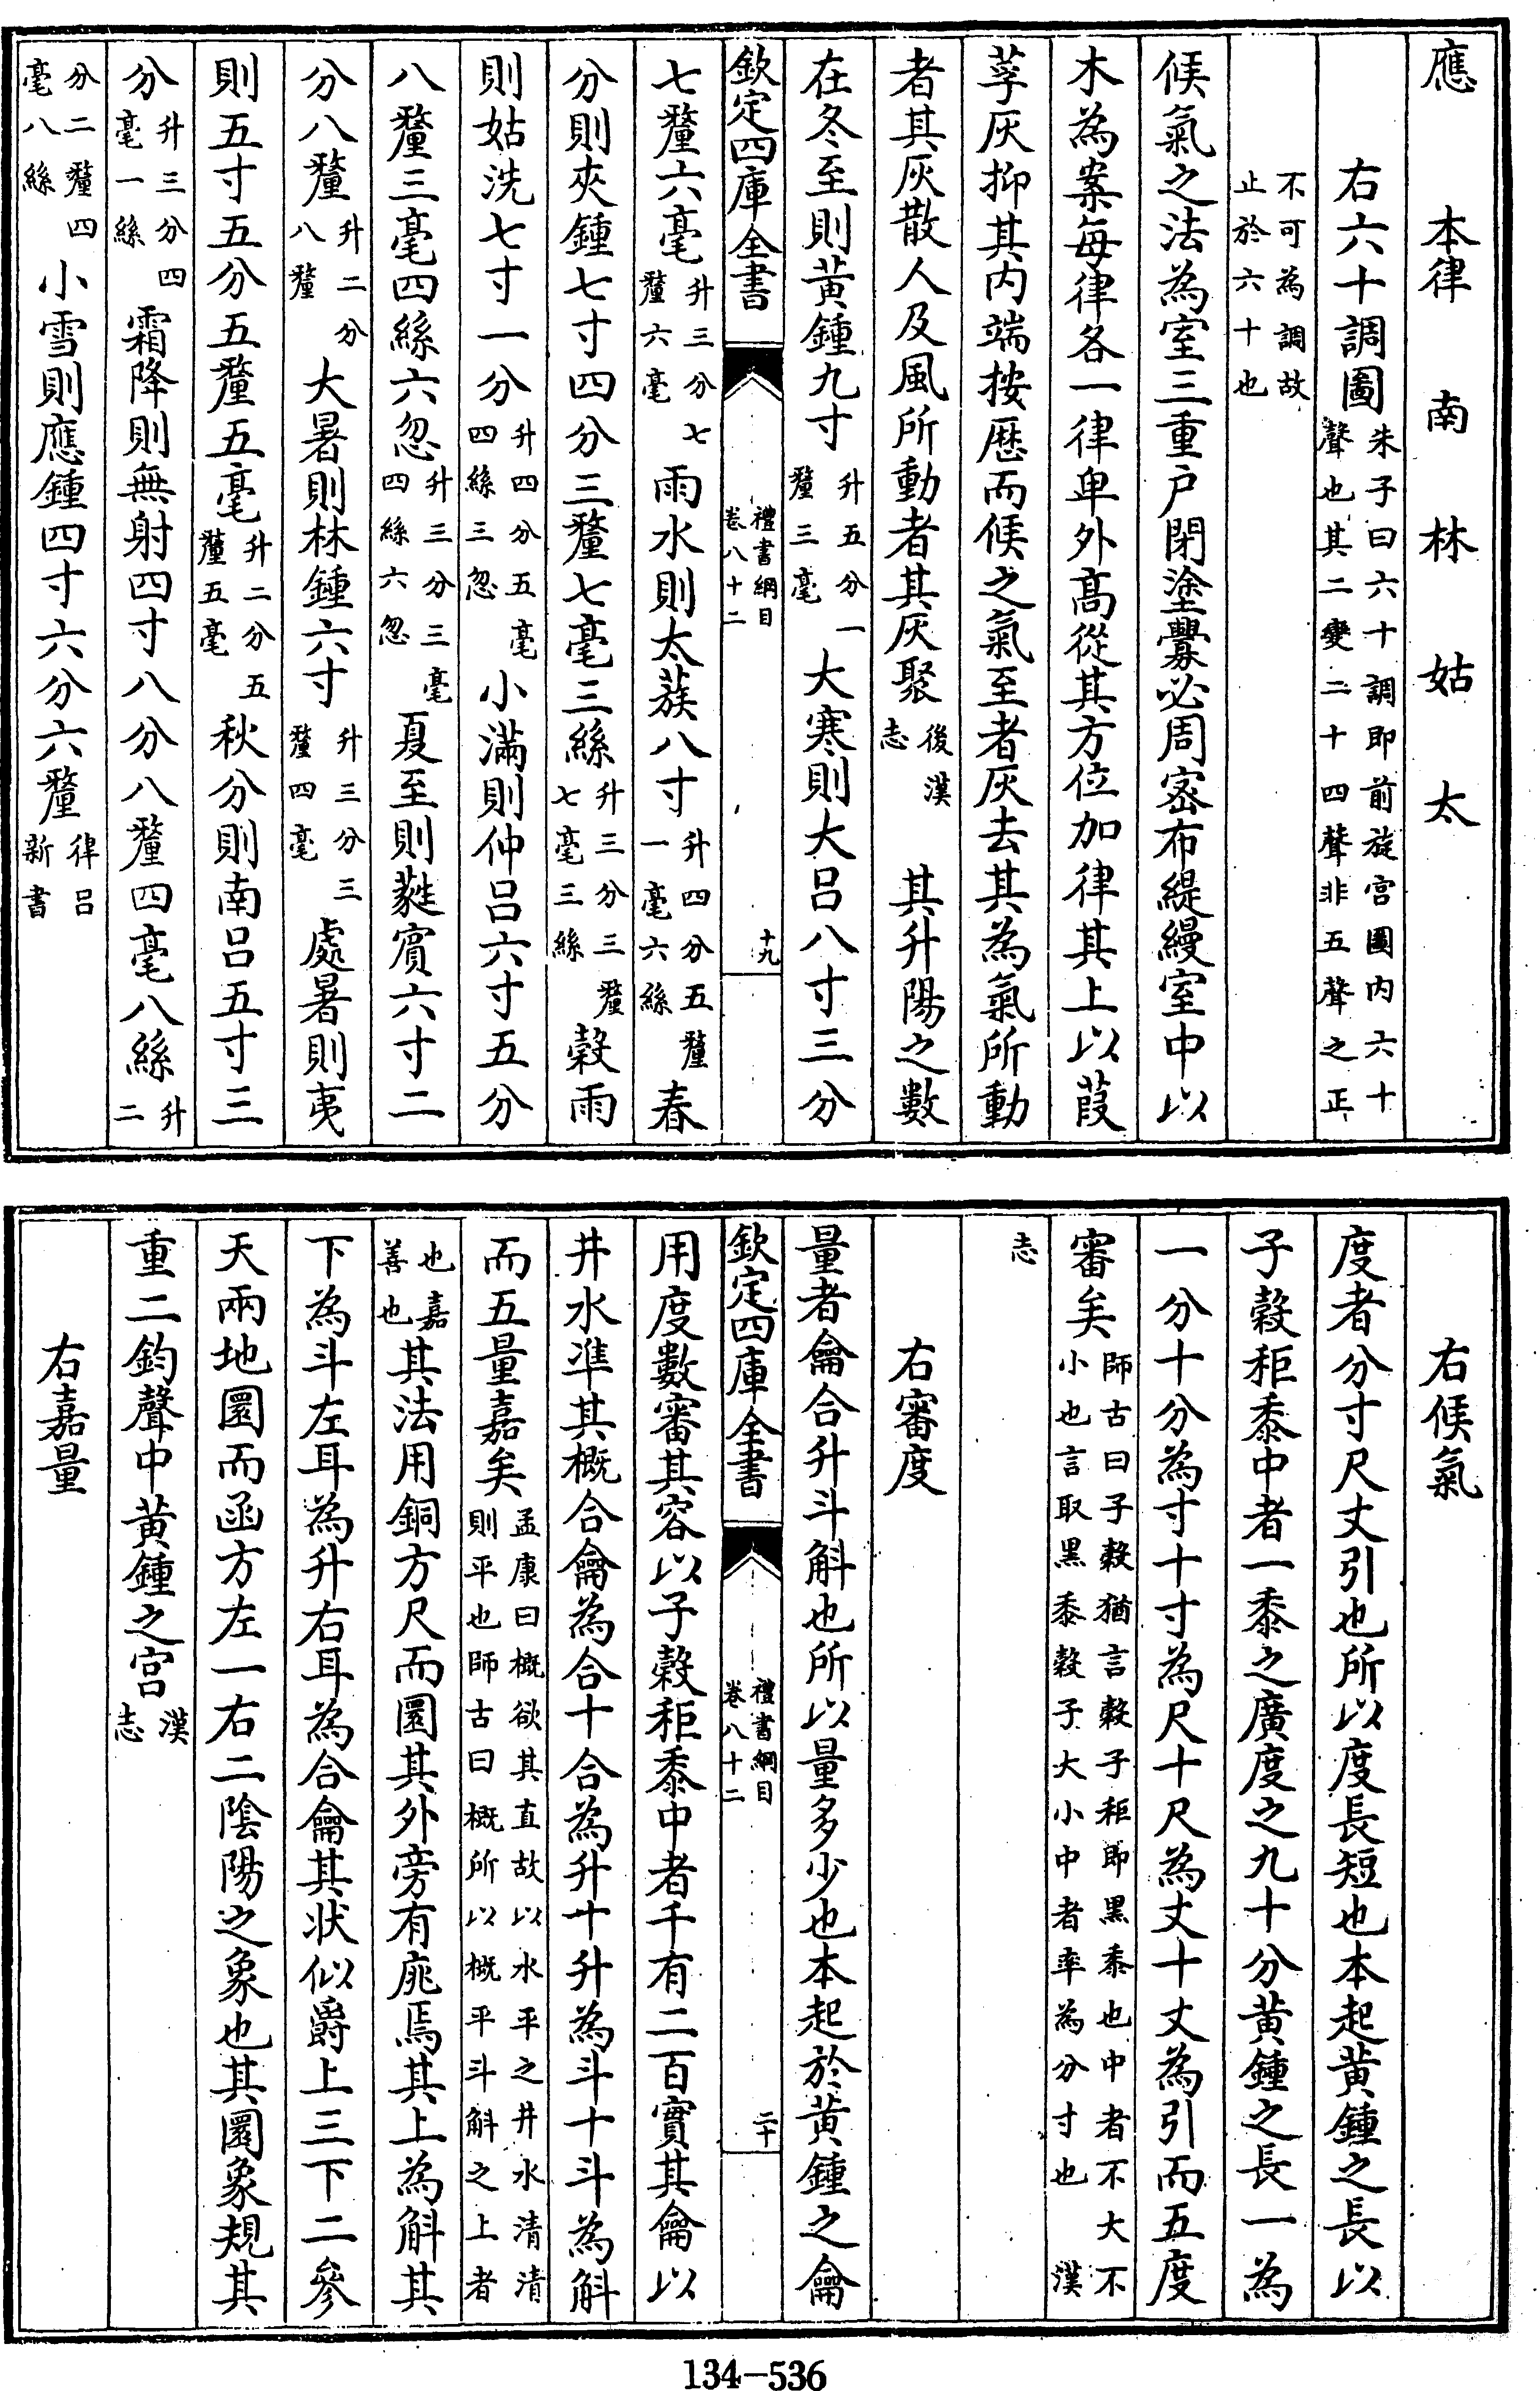 應　本律　南　林　姑　太
右六十調圖朱子曰六十調即前旋宮圖内六十聲也其二變二十四聲非五聲之正
不可為調故止於六十也
候氣之法為室三重户閉塗釁必周密布緹縵室中以
木為案每律各一律卑外高從其方位加律其上以葭
莩灰抑其内端按厯而候之氣至者灰去其為氣所動
者其灰散人及風所動者其灰聚後漢志　其升陽之數
在冬至則黄鍾九寸升五分一釐三毫　大寒則大吕八寸三分
欽定四庫全書　禮書綱目卷八十二　十九
七釐六毫升三分七釐六毫　雨水則太蔟八寸升四分五釐一毫六絲　春
分則夾鍾七寸四分三釐七毫三絲升三分三釐七毫三絲　穀雨
則姑洗七寸一分升四分五毫四絲三忽　小滿則仲吕六寸五分
八釐三毫四絲六忽升三分三毫四絲六忽　夏至則蕤賓六寸二
分八釐升二分八釐　大暑則林鍾六寸升三分三釐四毫　處暑則夷
則五寸五分五釐五毫升二分五釐五毫　秋分則南吕五寸三
分升三分四毫一絲　霜降則無射四寸八分八釐四毫八絲升二
分二釐四毫八絲　小雪則應鍾四寸六分六釐律吕新書
右候氣
度者分寸尺丈引也所以度長短也本起黄鍾之長以
子穀秬黍中者一黍之廣度之九十分黄鍾之長一為
一分十分為寸十寸為尺十尺為丈十丈為引而五度
審矣師古曰子穀猶言穀子秬即黑黍也中者不大不小也言取黑黍穀子大小中者率為分寸也　漢
志
右審度
量者龠合升斗斛也所以量多少也本起於黄鍾之龠
欽定四庫全書　禮書綱目卷八十二　二十
用度數審其容以子穀秬黍中者千有二百實其龠以
井水準其概合龠為合十合為升十升為斗十斗為斛
而五量嘉矣孟康曰概欲其直故以水平之井水清清則平也師古曰概所以概平斗斛之上者
也嘉善也其法用銅方尺而圜其外旁有庣焉其上為斛其
下為斗左耳為升右耳為合龠其狀似爵上三下二參
天兩地圜而函方左一右二陰陽之象也其圜象規其
重二鈞聲中黄鍾之宫漢志
右嘉量
134-536